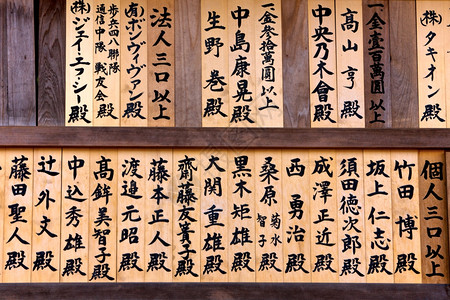 (株)タキオン殿
金壹百萬圓以上
高山亨殿
中央乃木會殿
一金参拾萬圓以上
中島康晃殿
生野巻殿
法人三口以上
(有)ボンヴィヴァン殿
歩兵四八聯隊
通信中隊戦友会殿
(株)ジェイエフシー殿
個人三口以上
竹田博殿
坂上仁志殿
須田徳次郎殿
成澤正近殿
西勇治殿
桑原菊水
智子殿
黒木矩雄殿
大関重雄殿
齋藤友美子殿
藤本正人殿
渡邉元昭殿
高鉾美智子殿
中込秀雄殿
辻外文殿
藤田聖人殿